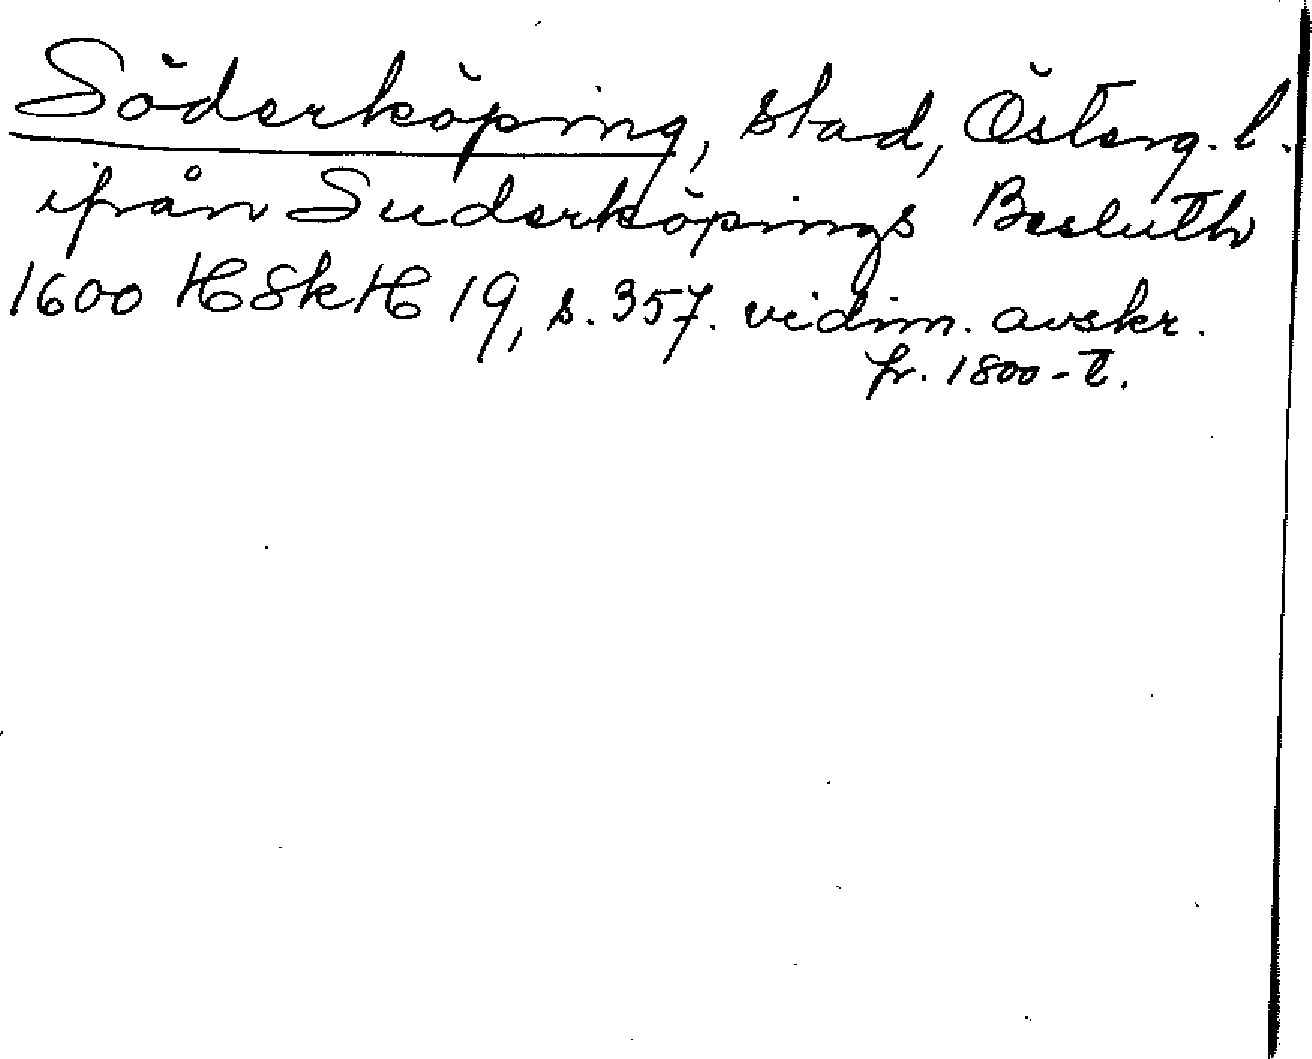 Söderköping, stad, Österg. l.
ifrån Suderköpings Besluth
1600 HSkH 19, s. 357. vidim. avskr.
fr. 1800-t.